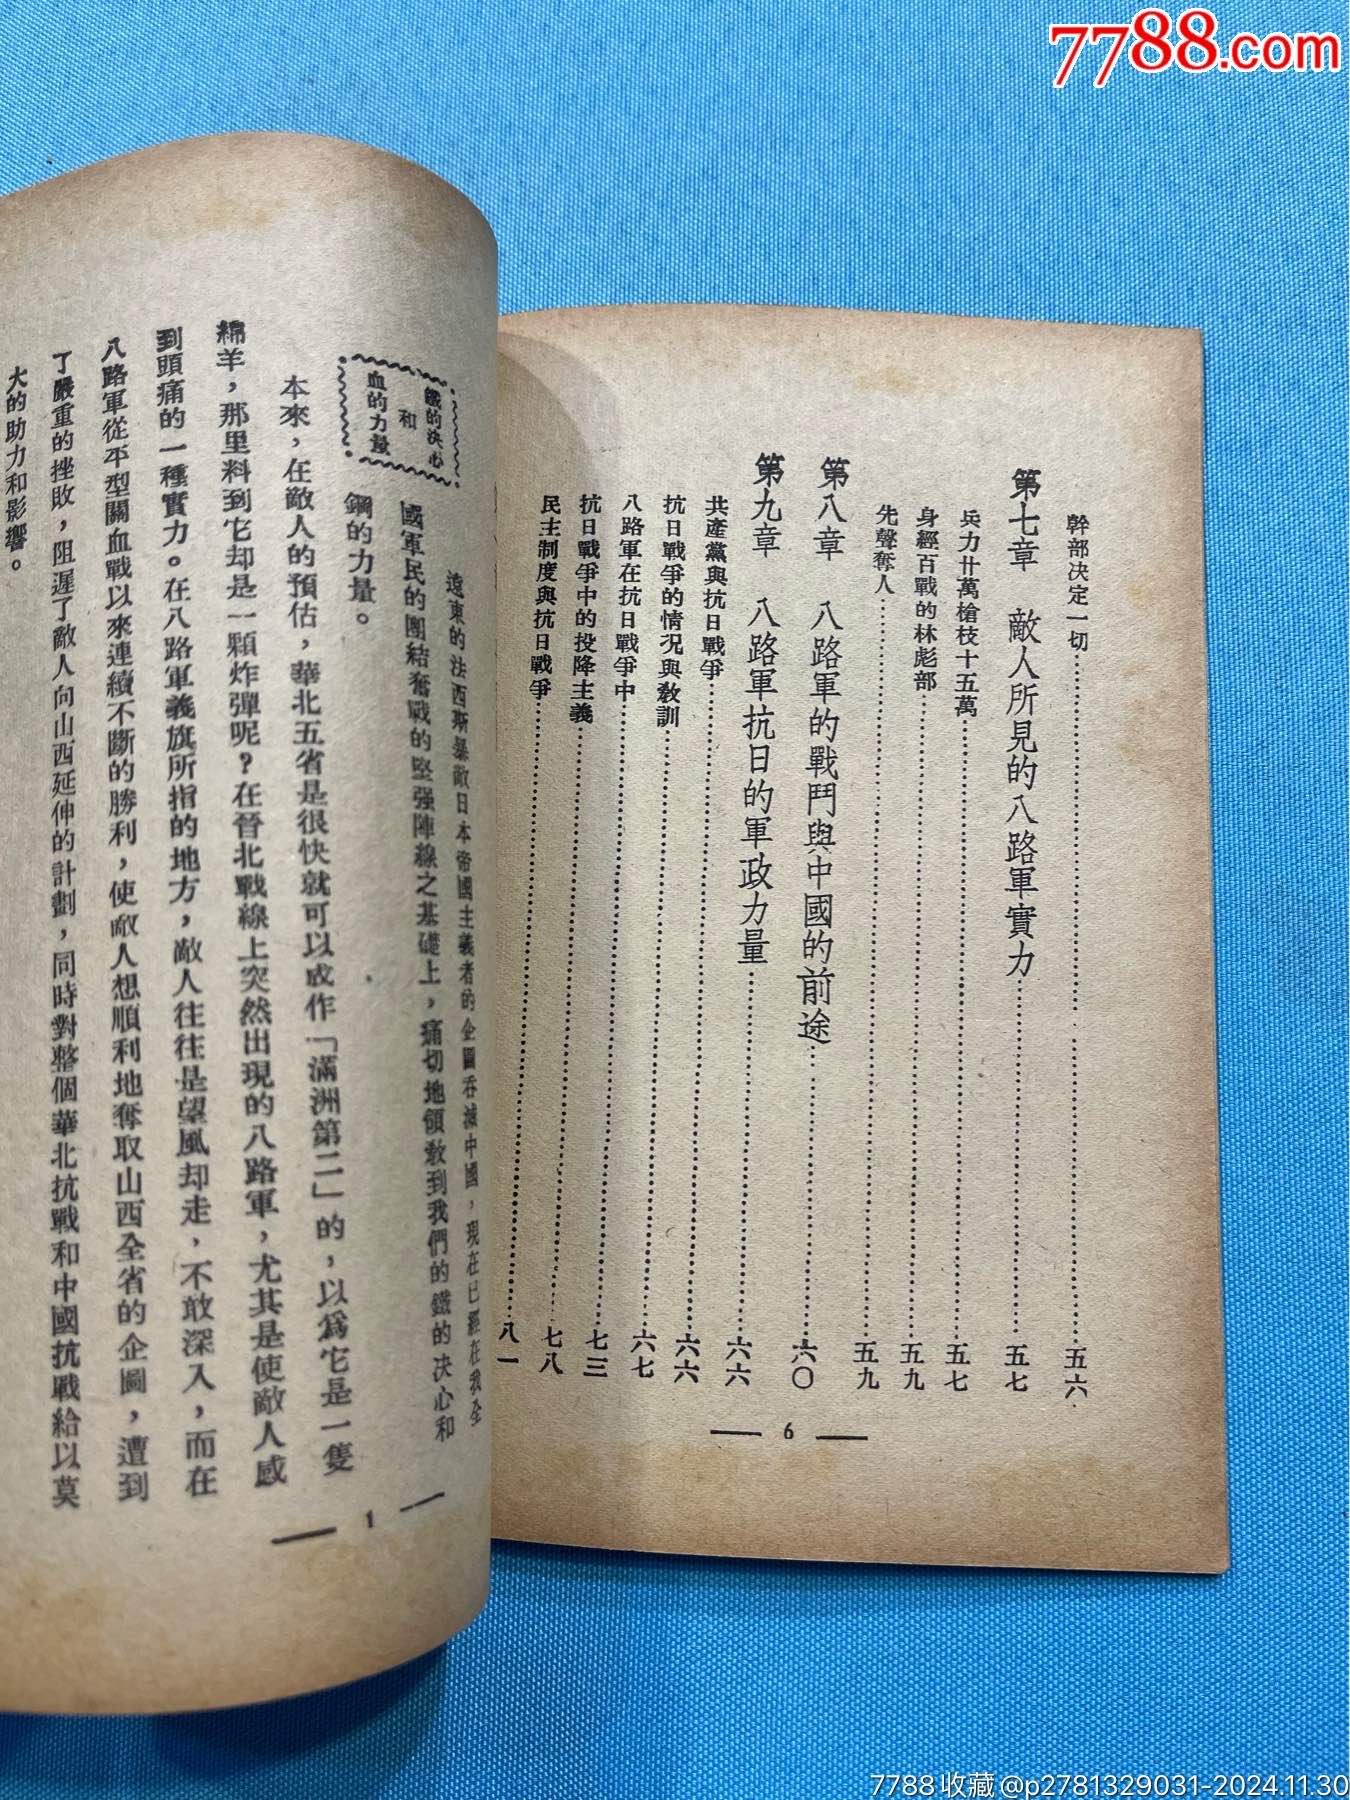 7788.com
幹部决定一切 五六
第七章 敵人所見的八路軍實力 五七
兵力廿萬槍枝十五萬 五七
身經百戰的林彪部 五九
先聲奪人 五九
第八章 八路軍的戰鬥與中國的前途 六〇
第九章 八路軍抗日的軍政力量 六六
共產黨與抗日戰爭 六六
抗日戰爭的情况與教訓 六七
八路軍在抗日戰爭中 七三
抗日戰爭中的投降主義 七八
民主制度與抗日戰爭 八一
6
鐵的决心
和
血的力量
遠東的法西斯暴敵日本帝國主義者的企圖吞滅中國，現在已經在我全
國軍民的團結奮戰的堅强陣線之基礎上，痛切地領教到我們的鐵的决心和
鋼的力量。
本來，在敵人的預估，華北五省是很快就可以成作「滿洲第二」的，以爲它是一隻
綿羊，那里料到它却是一顆炸彈呢？在晉北戰線上突然出現的八路軍，尤其是使敵人感
到頭痛的一種實力。在八路軍義旗所指的地方，敵人往往是望風却走，不敢深入，而在
八路軍從平型關血戰以來連續不斷的勝利，使敵人想順利地奪取山西全省的企圖，遭到
了嚴重的挫敗，阻遲了敵人向山西延伸的計劃，同時對整個華北抗戰和中國抗戰給以莫
大的助力和影響。
1
7788收藏@p2781329031-2024.11.30